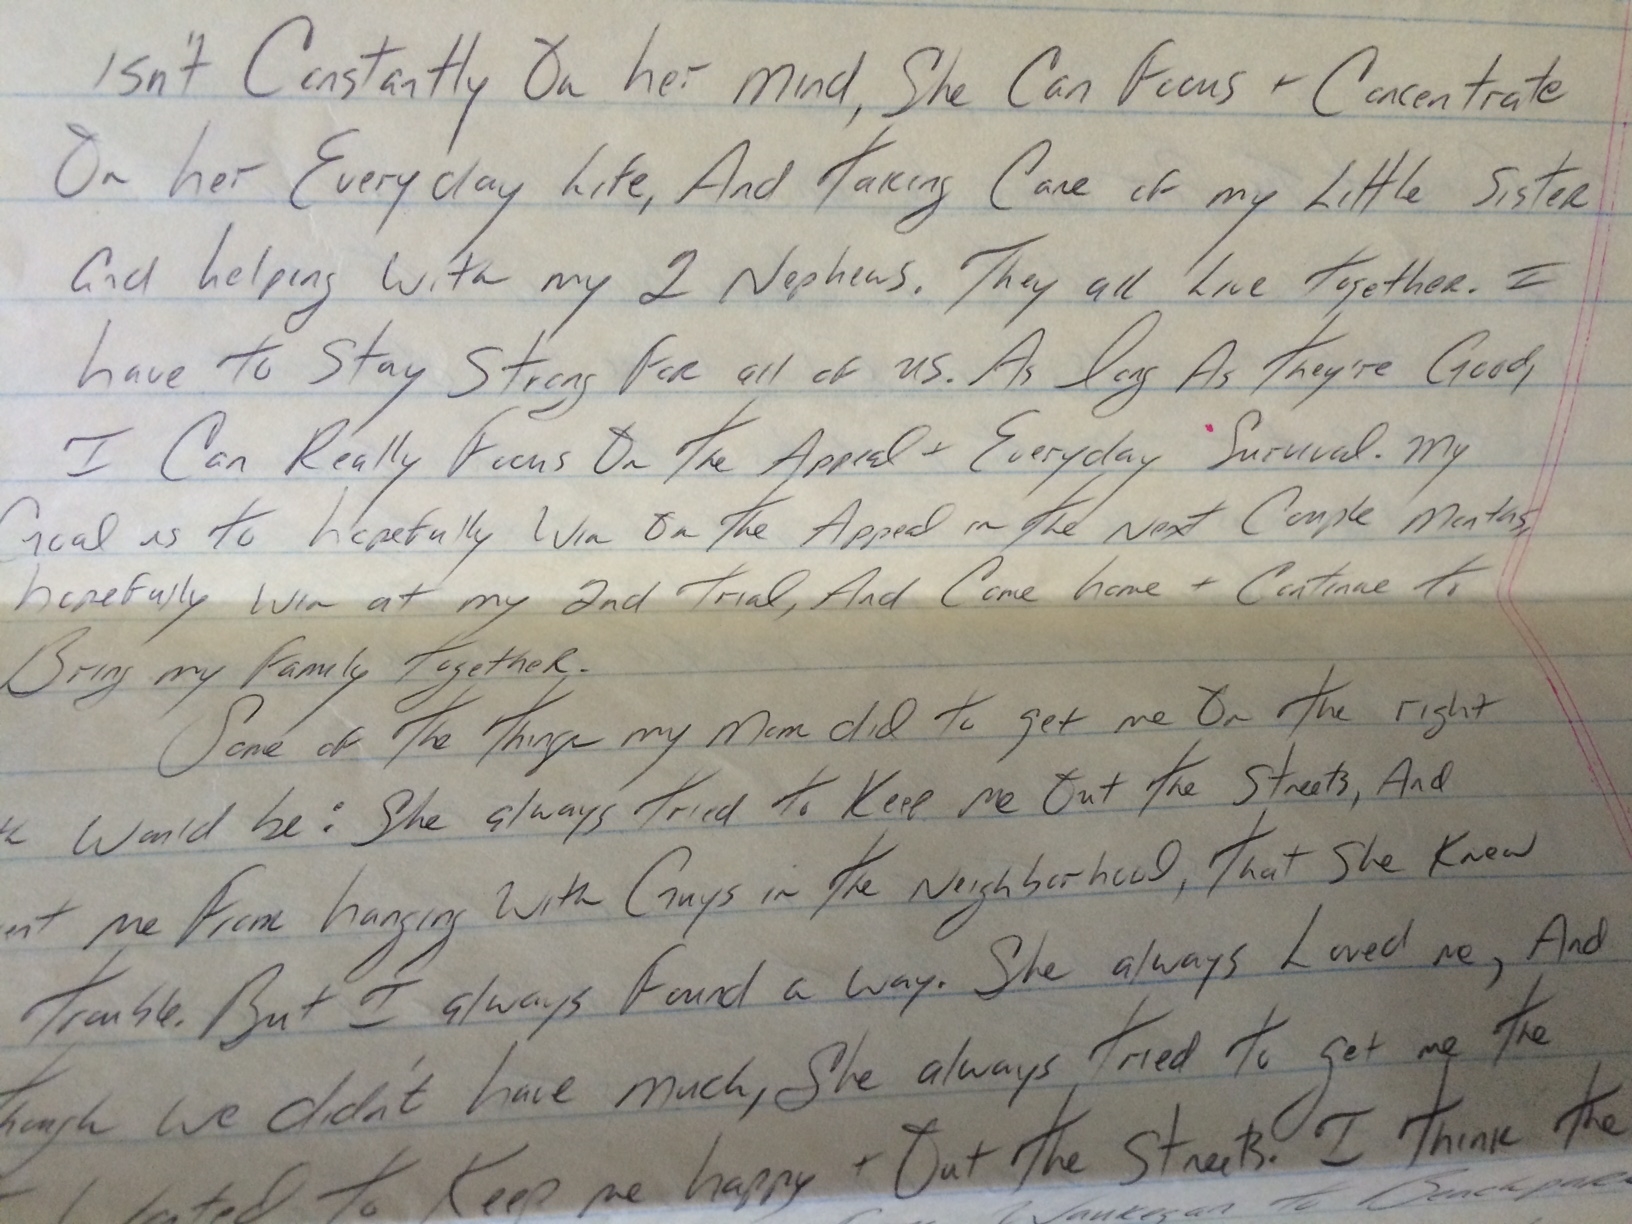 isn't Constantly On her mind, She Can Focus + Concentrate
On her Everyday Life, And Taking Care of my Little Sister
and helping With my 2 Nephews. They all Live together. I
have to Stay Strong For all of us. As long As they're Good,
I Can Really Focus On The Appeal + Everyday Survival. My
Goal is to hopefully Win On The Appeal in the Next Couple Months,
hopefully win at my 2nd Trial, And Come home + Continue to
Bring my Family Together.
Some of The Things my Mom did to get me On The right
Would be: She always tried to Keep me Out The Streets, And
me From hanging With Guys in The Neighborhood, That She Knew
Trouble. But I always Found a way. She always Loved me, And
though We didn't have much, She always Tried to get me The
to Keep me happy + Out The Streets. I Think The
Waukegan to